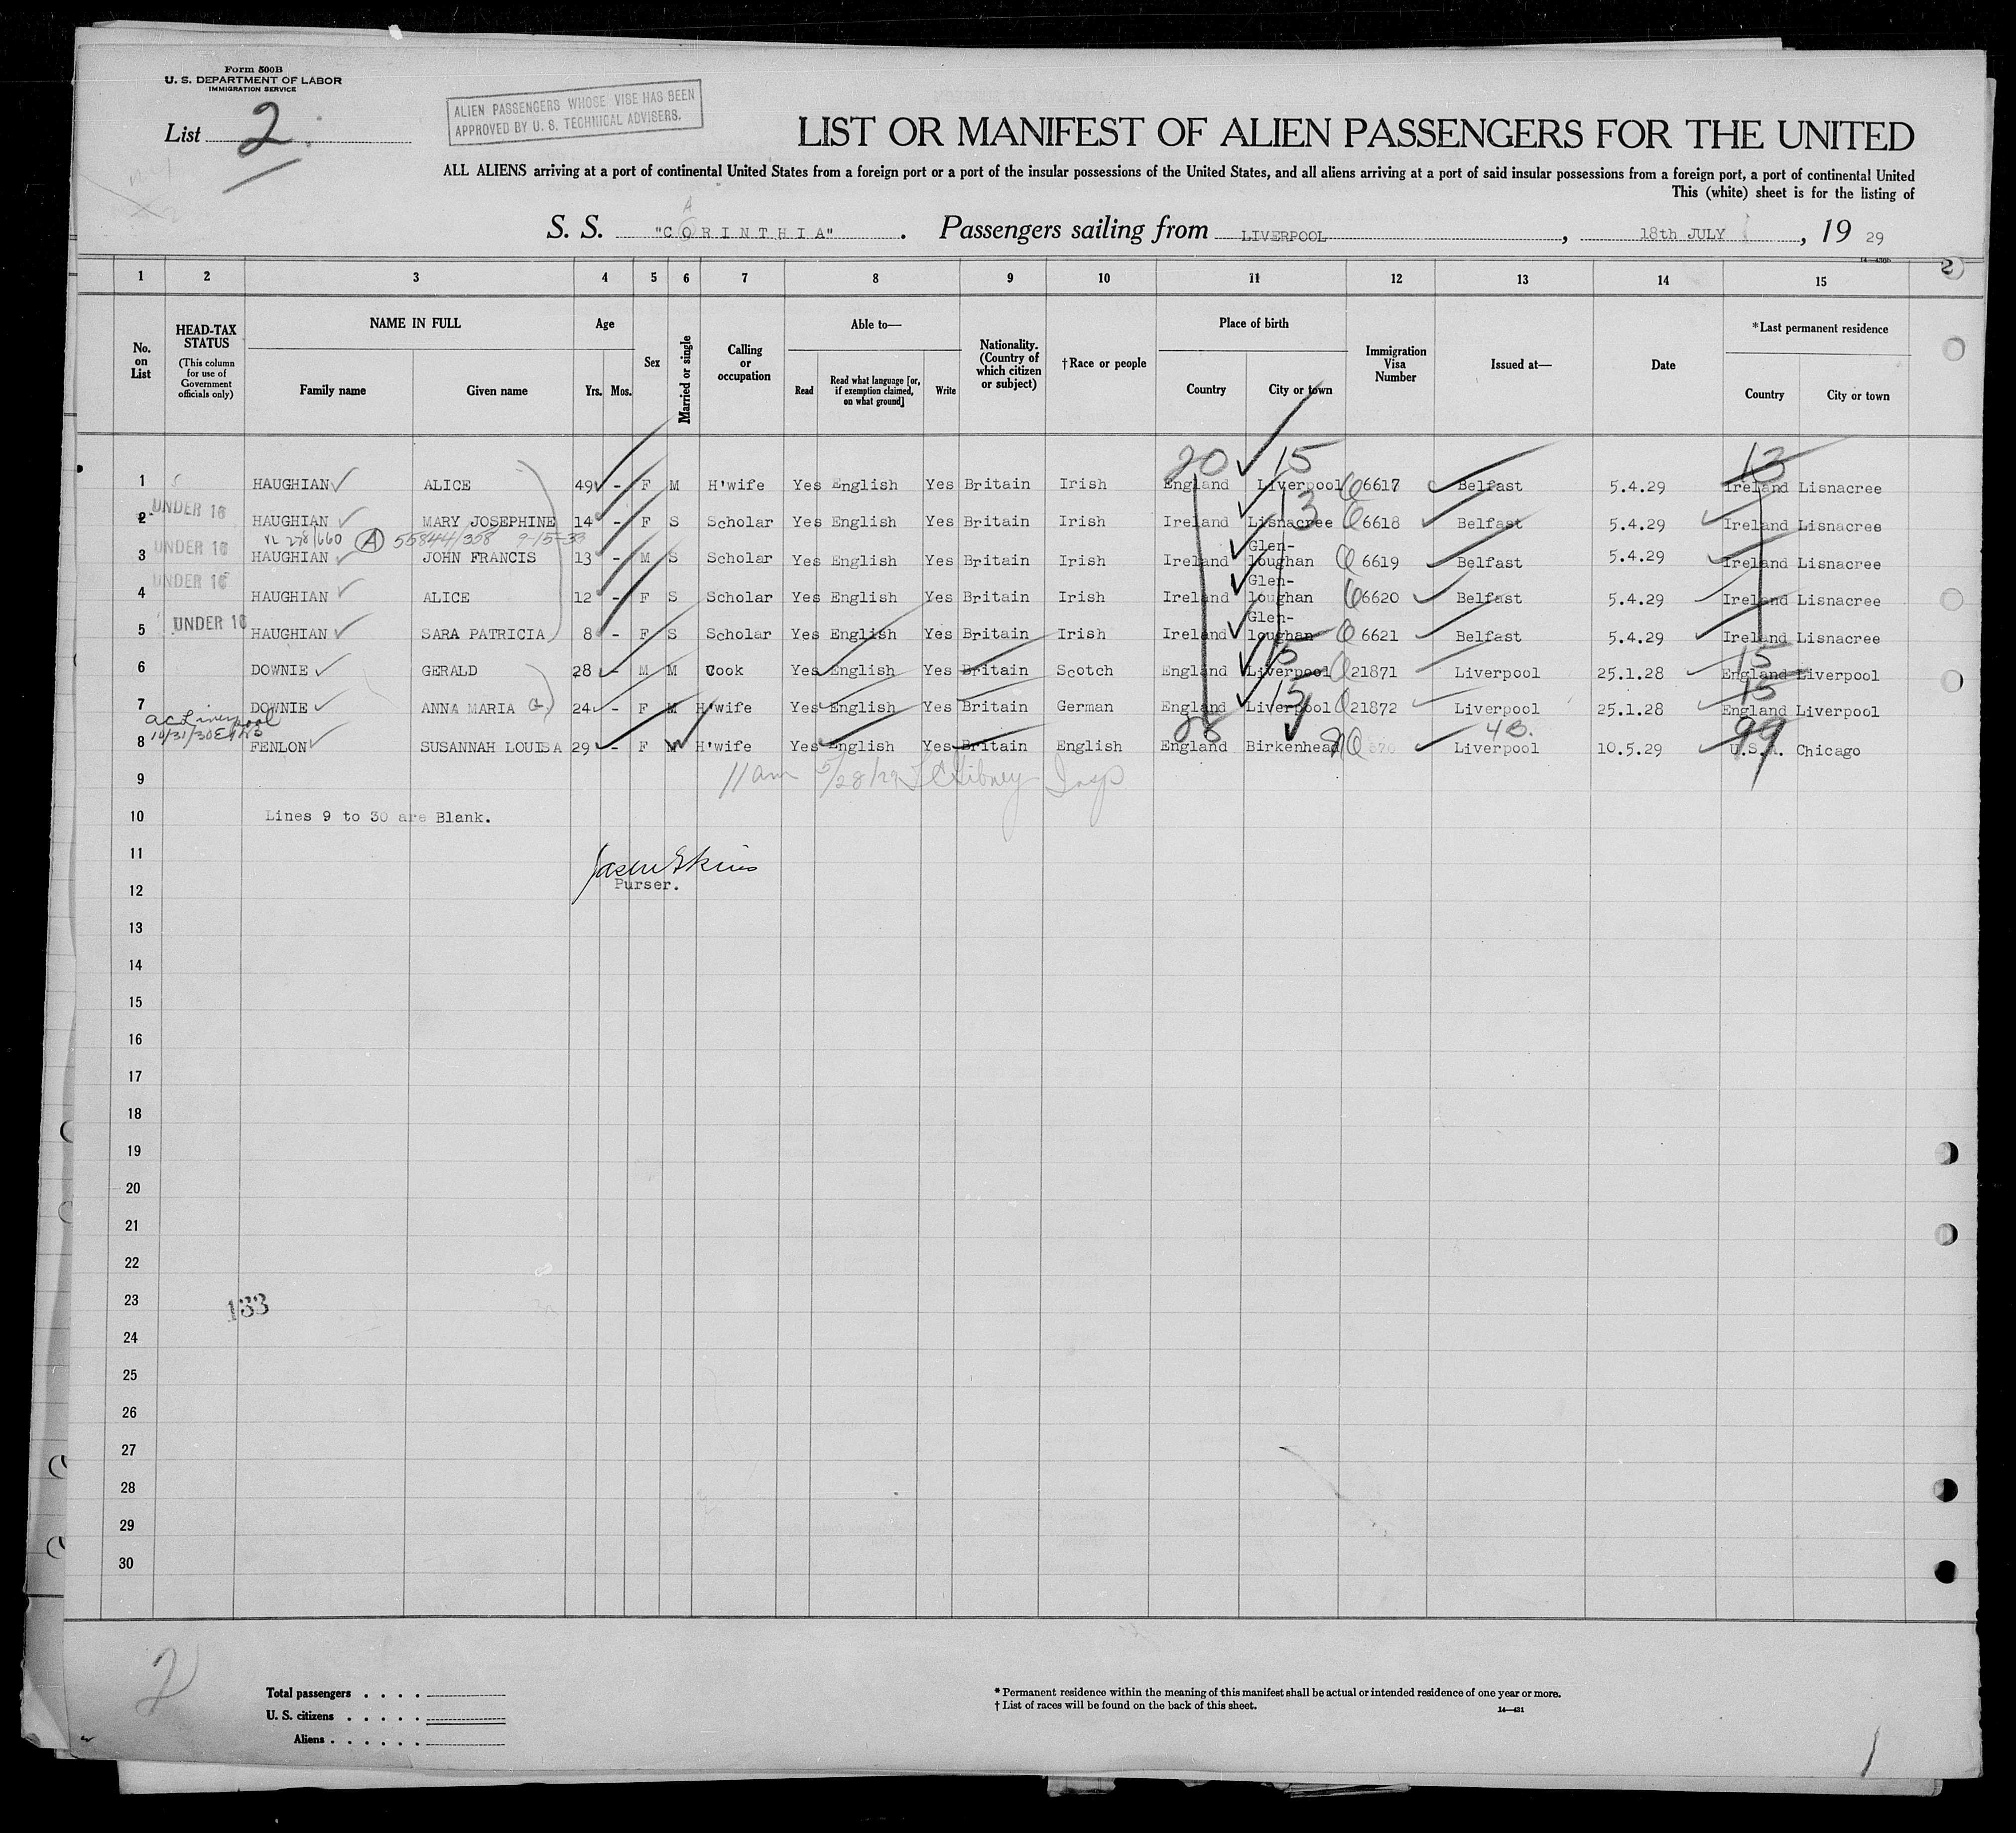 Form 500B
U. S. DEPARTMENT OF LABOR
IMMIGRATION SERVICE
List 2
ALIEN PASSENGERS WHOSE VISE HAS BEEN
APPROVED BY U. S. TECHNICAL ADVISERS.
LIST OR MANIFEST OF ALIEN PASSENGERS FOR THE UNITED
ALL ALIENS arriving at a port of continental United States from a foreign port or a port of the insular possessions of the United States, and all aliens arriving at a port of said insular possessions from a foreign port, a port of continental United
This (white) sheet is for the listing of
A
S. S. "CORINTHIA". Passengers sailing from LIVERPOOL, 18th JULY, 19 29
1 2 3 4 5 6 7 8 9 10 11 12 13 14 15 2
No. on List
HEAD-TAX STATUS
(This column for use of Government officials only)
NAME IN FULL
Family name Given name
Age
Yrs. Mos.
Sex
Married or single
Calling or occupation
Able to—
Read Read what language [or, if exemption claimed, on what ground] Write
Nationality. (Country of which citizen or subject)
†Race or people
Place of birth
Country City or town
Immigration Visa Number
Issued at—
Date
*Last permanent residence
Country City or town
20 15 13
1 HAUGHIAN ALICE 49 - F M H'wife Yes English Yes Britain Irish England Liverpool 6617 Belfast 5.4.29 Ireland Lisnacree
UNDER 16
2 HAUGHIAN MARY JOSEPHINE 14 - F S Scholar Yes English Yes Britain Irish Ireland Lisnacree 13 6618 Belfast 5.4.29 Ireland Lisnacree
A
UNDER 16
3 HAUGHIAN JOHN FRANCIS 13 - M S Scholar Yes English Yes Britain Irish Ireland Glen-loughan 6619 Belfast 5.4.29 Ireland Lisnacree
UNDER 16
4 HAUGHIAN ALICE 12 - F S Scholar Yes English Yes Britain Irish Ireland Glen-loughan 6620 Belfast 5.4.29 Ireland Lisnacree
UNDER 16
5 HAUGHIAN SARA PATRICIA 8 - F S Scholar Yes English Yes Britain Irish Ireland Glen-loughan 6621 Belfast 5.4.29 Ireland Lisnacree
15 15
6 DOWNIE GERALD 28 - M M Cook Yes English Yes Britain Scotch England Liverpool 21871 Liverpool 25.1.28 England Liverpool
15 15
7 DOWNIE ANNA MARIA G. 24 - F M H'wife Yes English Yes Britain German England Liverpool 21872 Liverpool 25.1.28 England Liverpool
4B. 99
8 FENLON SUSANNAH LOUISA 29 - F M H'wife Yes English Yes Britain English England Birkenhead Liverpool 10.5.29 U.S.A. Chicago
9
11 am Insp
10 Lines 9 to 30 are Blank.
11
12 Purser.
13
14
15
16
17
18
19
20
21
22
23
133
24
25
26
27
28
29
30
2
Total passengers
U. S. citizens
Aliens
* Permanent residence within the meaning of this manifest shall be actual or intended residence of one year or more.
† List of races will be found on the back of this sheet.
14—431
1